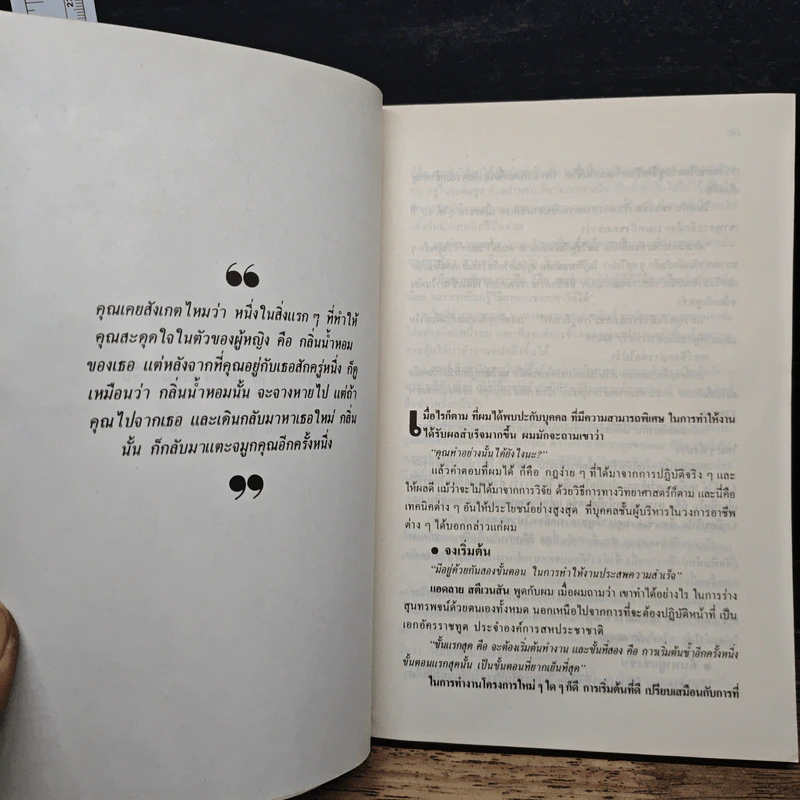 “
คุณเคยสังเกตไหมว่า หนึ่งในสิ่งแรก ๆ ที่ทำให้
คุณสะดุดใจในตัวของผู้หญิง คือ กลิ่นน้ำหอม
ของเธอ แต่หลังจากที่คุณอยู่กับเธอสักครู่หนึ่ง ก็ดู
เหมือนว่า กลิ่นน้ำหอมนั้น จะจางหายไป แต่ถ้า
คุณไปจากเธอ และเดินกลับมาหาเธอใหม่ กลิ่น
นั้น ก็กลับมาแตะจมูกคุณอีกครั้งหนึ่ง
”
เมื่อไรก็ตาม ที่ผมได้พบปะกับบุคคล ที่มีความสามารถพิเศษ ในการทำให้งาน
ได้รับผลสำเร็จมากขึ้น ผมมักจะถามเขาว่า
“คุณทำอย่างนั้นได้ยังไงนะ?”
แล้วคำตอบที่ผมได้ ก็คือ กฎง่าย ๆ ที่ได้มาจากการปฏิบัติจริง ๆ และ
ให้ผลดี แม้ว่าจะไม่ได้มาจากการวิจัย ด้วยวิธีการทางวิทยาศาสตร์ก็ตาม และนี่คือ
เทคนิคต่าง ๆ อันให้ประโยชน์อย่างสูงสุด ที่บุคคลชั้นผู้บริหารในวงการอาชีพ
ต่าง ๆ ได้บอกกล่าวแก่ผม
● จงเริ่มต้น
“มีอยู่ด้วยกันสองขั้นตอน ในการทำให้งานประสพความสำเร็จ”
แอดลาย สตีเวนสัน พูดกับผม เมื่อผมถามว่า เขาทำได้อย่างไร ในการร่าง
สุนทรพจน์ด้วยตนเองทั้งหมด นอกเหนือไปจากการที่จะต้องปฏิบัติหน้าที่ เป็น
เอกอัครราชทูต ประจำองค์การสหประชาชาติ
“ขั้นแรกสุด คือ จะต้องเริ่มต้นทำงาน และขั้นที่สอง คือ การเริ่มต้นซ้ำอีกครั้งหนึ่ง
ขั้นตอนแรกสุดนั้น เป็นขั้นตอนที่ยากเย็นที่สุด”
ในการทำงานโครงการใหม่ ๆ ใด ๆ ก็ดี การเริ่มต้นที่ดี เปรียบเสมือนกับการที่